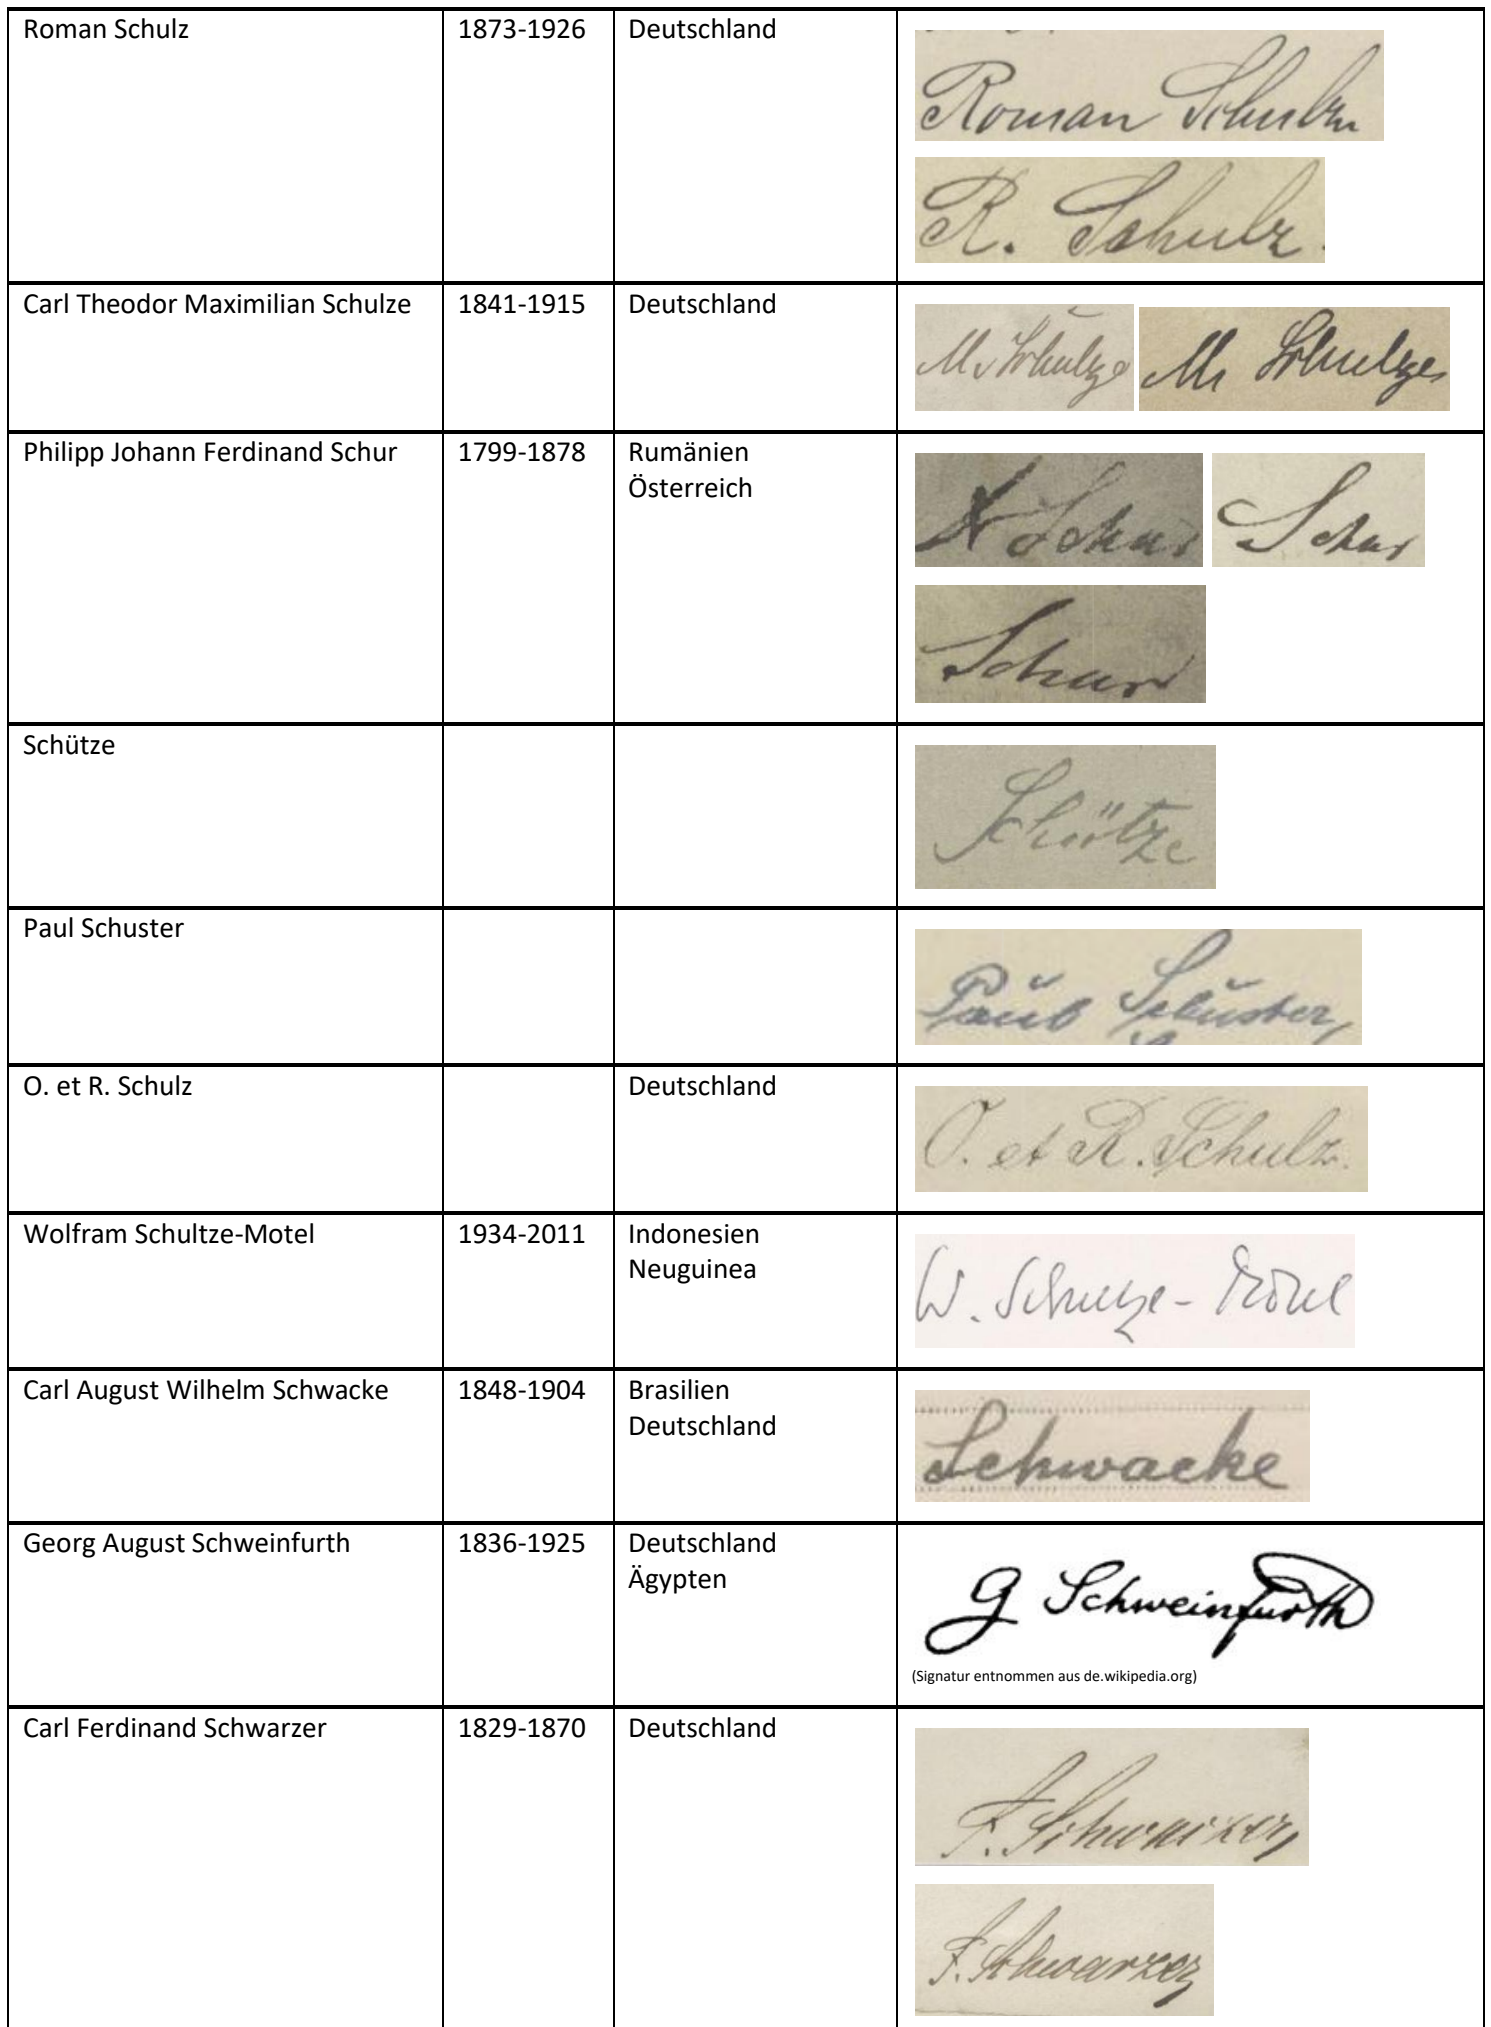 Roman Schulz 1873-1926 Deutschland
Roman Schulz
R. Schulz.
Carl Theodor Maximilian Schulze 1841-1915 Deutschland
M. Schulze M. Schulze
Philipp Johann Ferdinand Schur 1799-1878 Rumänien
Österreich
Schur Schur
Schur
Schütze
Schütze
Paul Schuster
Paul Schuster,
O. et R. Schulz Deutschland
O. et R. Schulz.
Wolfram Schultze-Motel 1934-2011 Indonesien
Neuguinea
W. Schultze-Motel
Carl August Wilhelm Schwacke 1848-1904 Brasilien
Deutschland
Schwacke
Georg August Schweinfurth 1836-1925 Deutschland
Ägypten
G Schweinfurth
(Signatur entnommen aus de.wikipedia.org)
Carl Ferdinand Schwarzer 1829-1870 Deutschland
F. Schwarzer
F. Schwarzer